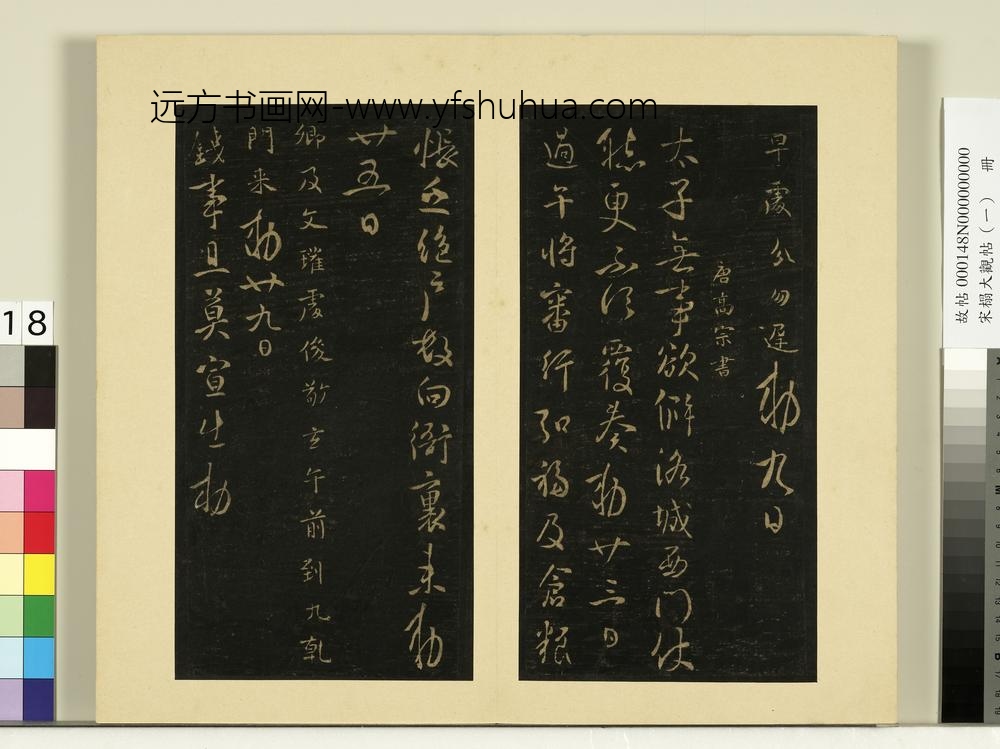 远方书画网-www.yfshuhua.com
早處分勿遲敕九日
唐高宗書
太子無事欲僻洛城西門仗
聽更不須覆奏敕廿三日
過午將審行弘福及倉粮
恨之絕戶教向衙裏來敕
廿五日
卿及文瓘處俊敬玄午前到九乾
門來敕廿九日
錢事且莫宣出敕
故帖000148N000000000
宋搨大觀帖(一) 冊
18